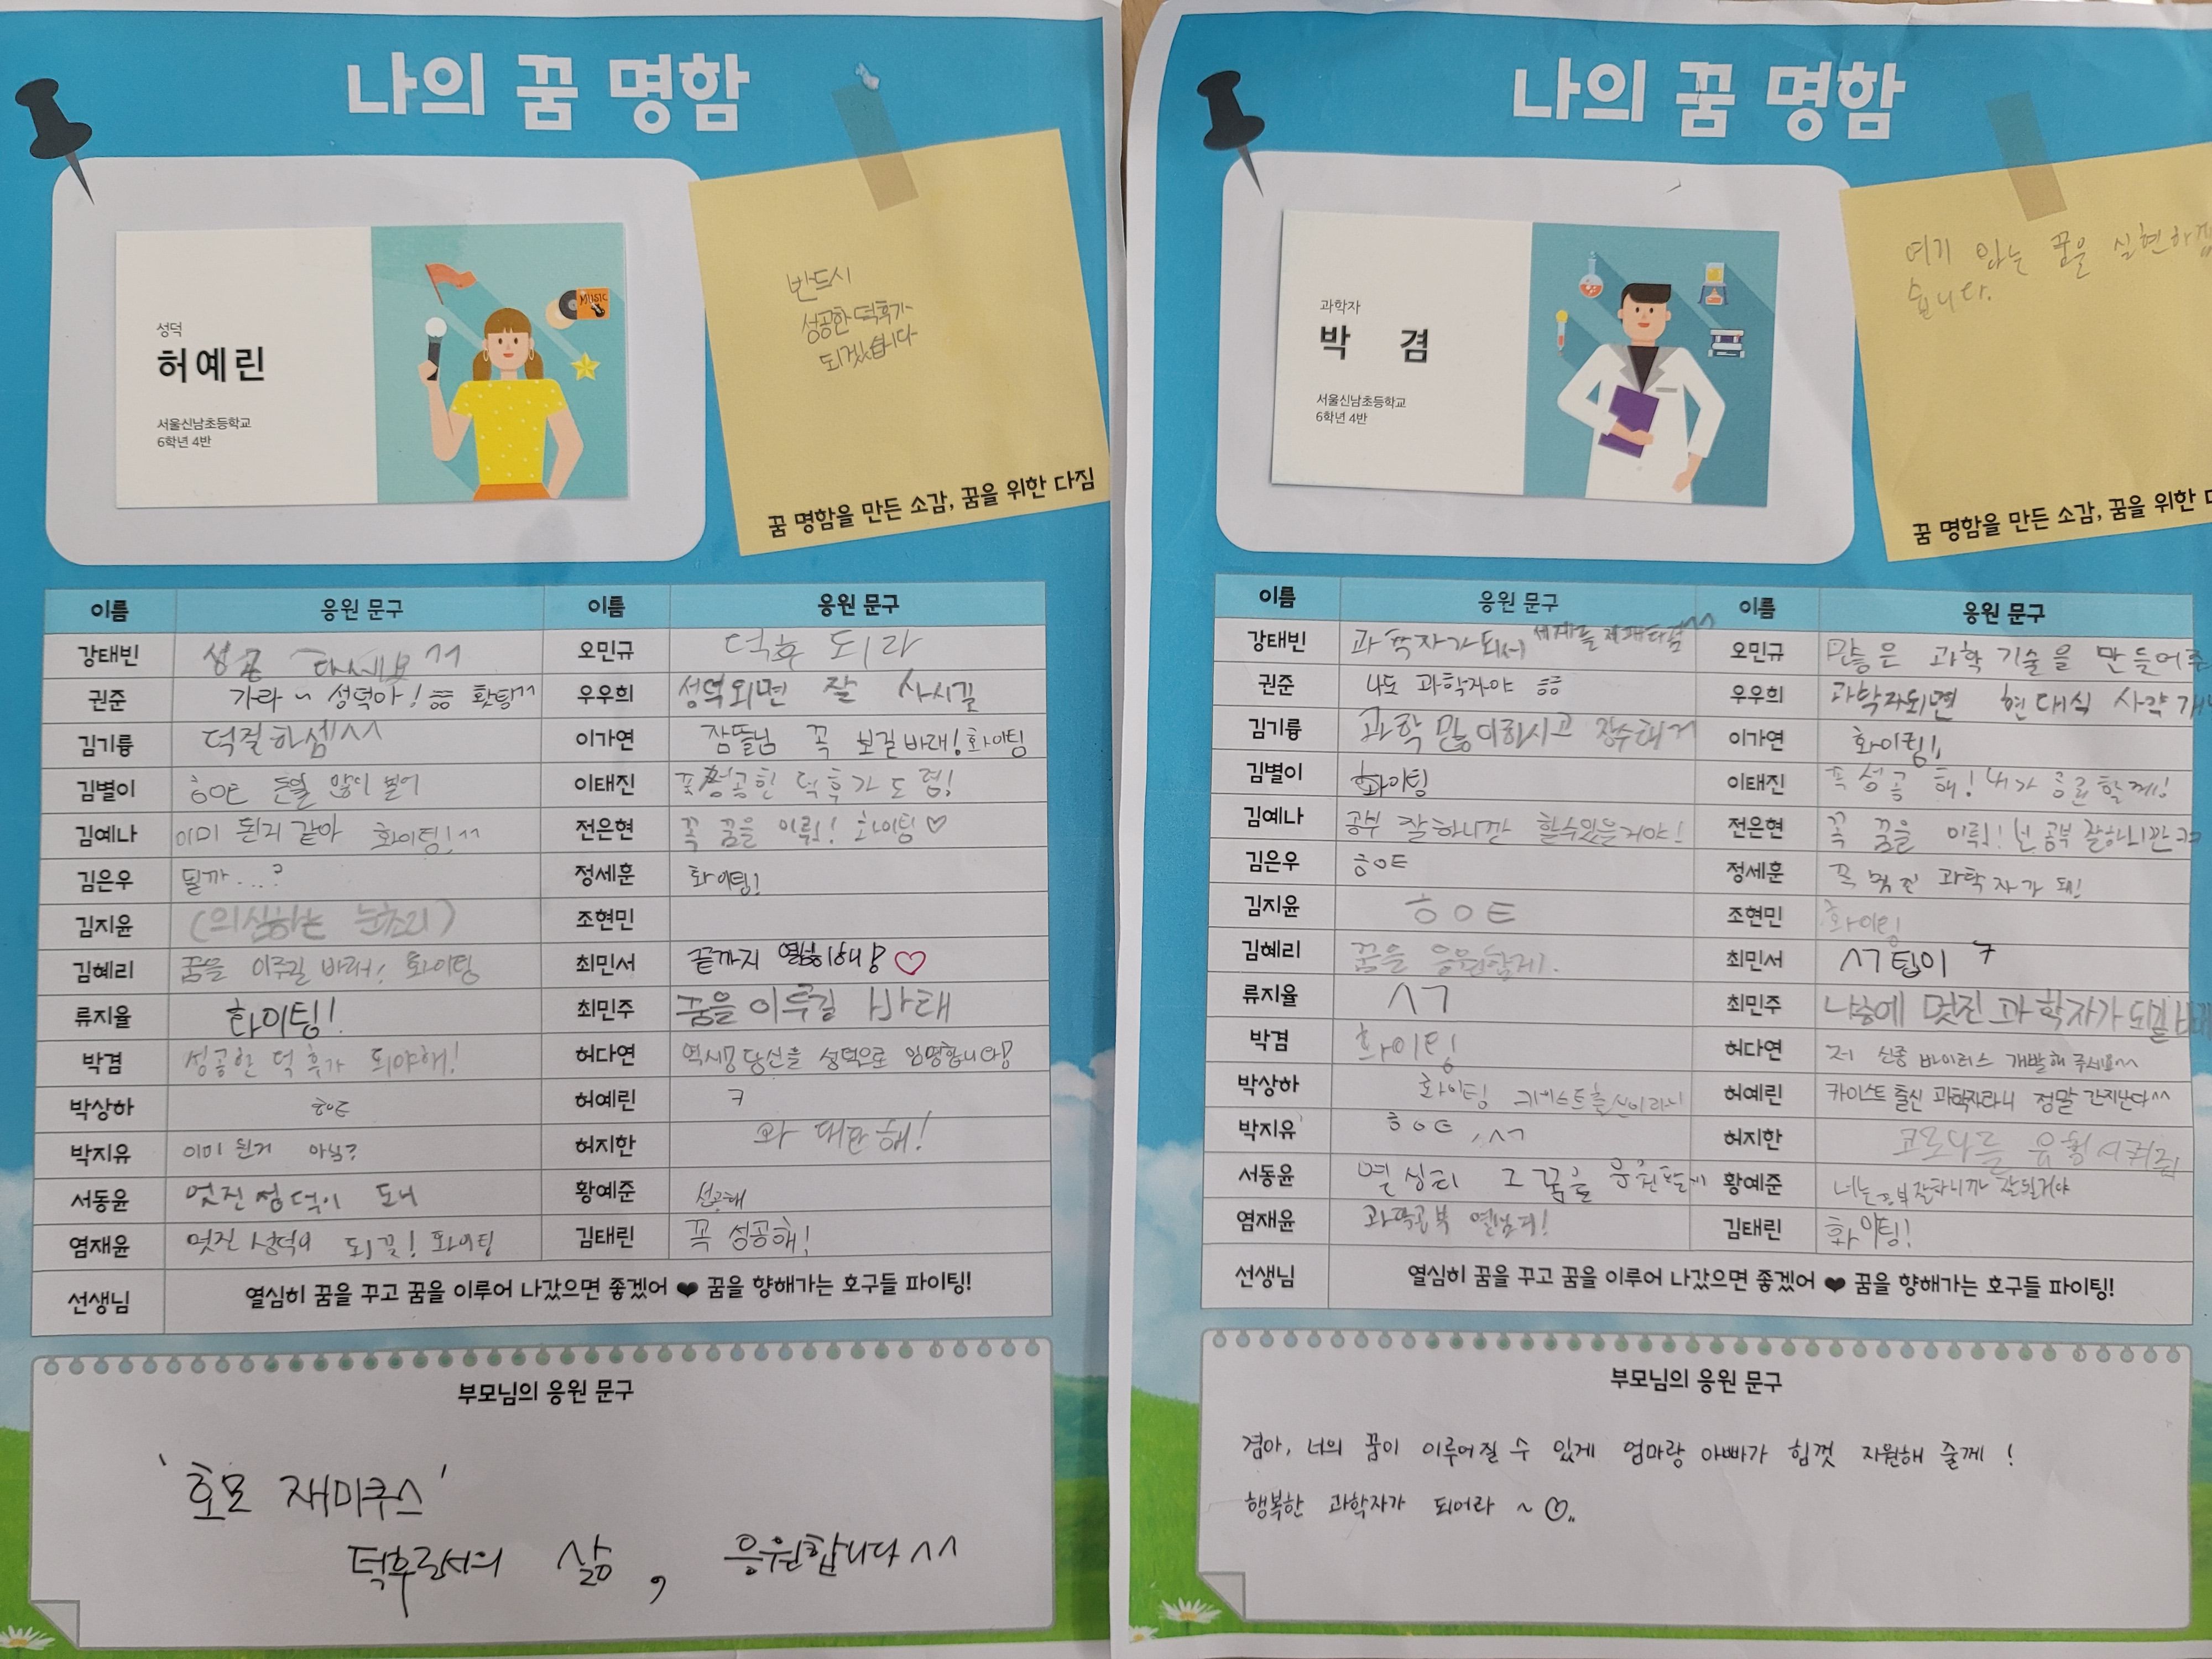 나의 꿈 명함
성덕
허예린
서울신남초등학교
6학년 4반
MUSIC
반드시
성공한 덕후가
되겠습니다
꿈 명함을 만든 소감, 꿈을 위한 다짐
이름 응원 문구 이름 응원 문구
강태빈 성공 하세요 ^^ 오민규 덕후 되라
권준 가라~ 성덕아! ㅎㅎ 홧팅^^ 우우희 성덕되면 잘 사시길
김기륭 덕질하셈^^ 이가연 잠뜰님 꼭 보길바래! 화이팅
김별이 ㅎㅇㅌ 돈 많이 벌어 이태진 꼭 성공한 덕후가 되렴!
김예나 이미 된거 같아 화이팅!^^ 전은현 꼭 꿈을 이뤄! 화이팅♡
김은우 될까...? 정세훈 화이팅!
김지윤 (의심하는 눈초리) 조현민
김혜리 꿈을 이루길 바래! 화이팅 최민서 끝까지 열심히해! ♡
류지율 화이팅! 최민주 꿈을 이루길 바래
박겸 성공한 덕후가 되야해! 허다연 역시 당신을 성덕으로 임명합니다!
박상하 ㅎㅇㅌ 허예린 ㅋ
박지유 이미 된거 아님? 허지한 와 대단해!
서동윤 멋진 성덕이 되니 황예준 성공해
염재윤 멋진 성덕이 되길! 화이팅 김태린 꼭 성공해!
선생님 열심히 꿈을 꾸고 꿈을 이루어 나갔으면 좋겠어 ❤ 꿈을 향해가는 호구들 파이팅!
부모님의 응원 문구
'호모 재미쿠스'
덕후로서의 삶, 응원합니다^^
나의 꿈 명함
과학자
박 겸
서울신남초등학교
6학년 4반
여기 있는 꿈을 실현하겠
습니다.
꿈 명함을 만든 소감, 꿈을 위한
이름 응원 문구 이름 응원 문구
강태빈 과학자가되서 세계를 ^^ 오민규 과학 기술을 만들어
권준 나도 과학자야 ㅎㅎ 우우희 과학자되면 현대식 사약
김기륭 과학 많이하시고 이가연 화이팅!
김별이 화이팅 이태진 꼭 성공해! 내가 응원할게!
김예나 공부 잘하니깐 할수있을거야! 전은현 꼭 꿈을 이뤄! 넌 공부잘하니깐
김은우 ㅎㅇㅌ 정세훈 꼭 멋진 과학자가 돼!
김지윤 ㅎㅇㅌ 조현민 화이팅
김혜리 꿈을 응원할게! 최민서 ㅅㄱ 팁이 ㅋ
류지율 ㅅㄱ 최민주 나중에 멋진 과학자가 되길
박겸 화이팅! 허다연 저 신종 바이러스 개발해 주세요^^
박상하 화이팅 카이스트출신이라니 허예린 카이스트 출신 과학자라니 정말 간지난다^^
박지유 ㅎㅇㅌ, ㅅㄱ 허지한 코로나를 유행시켜줘
서동윤 열심히 그 꿈을 응원할게 황예준 너는 공부잘하니까 잘될거야
염재윤 과학공부 열심히! 김태린 화이팅!
선생님 열심히 꿈을 꾸고 꿈을 이루어 나갔으면 좋겠어 ❤ 꿈을 향해가는 호구들 파이팅!
부모님의 응원 문구
겸아, 너의 꿈이 이루어질 수 있게 엄마랑 아빠가 힘껏 지원해 줄게 !
행복한 과학자가 되어라 ~ ♡..